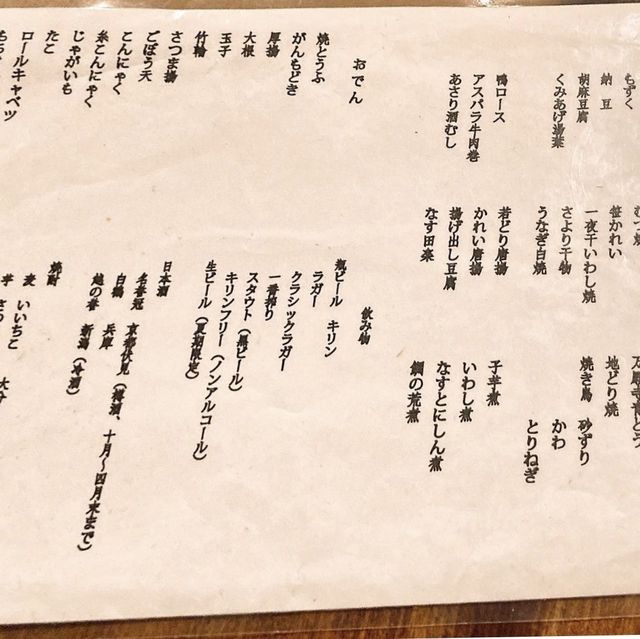 もずく
納豆
胡麻豆腐
くみあげ湯葉
鴨ロース
アスパラ牛肉巻
あさり酒むし
笹かれい
一夜干いわし焼
さより干物
うなぎ白焼
若どり唐揚
かれい唐揚
揚げ出し豆腐
なす田楽
地どり焼
焼き鳥 砂ずり
かわ
とりねぎ
子芋煮
いわし煮
なすとにしん煮
鯛の荒煮
おでん
焼とうふ
がんもどき
厚揚
大根
玉子
竹輪
さつま揚
ごぼう天
こんにゃく
糸こんにゃく
じゃがいも
たこ
ロールキャベツ
飲み物
瓶ビール キリン
ラガー
クラシックラガー
一番搾り
スタウト(黒ビール)
キリンフリー(ノンアルコール)
生ビール(夏期限定)
日本酒
名誉冠 京都伏見(樽酒、十月〜四月末まで)
白鶴 兵庫
越の誉 新潟(冷酒)
焼酎
麦 いいちこ 大分
芋